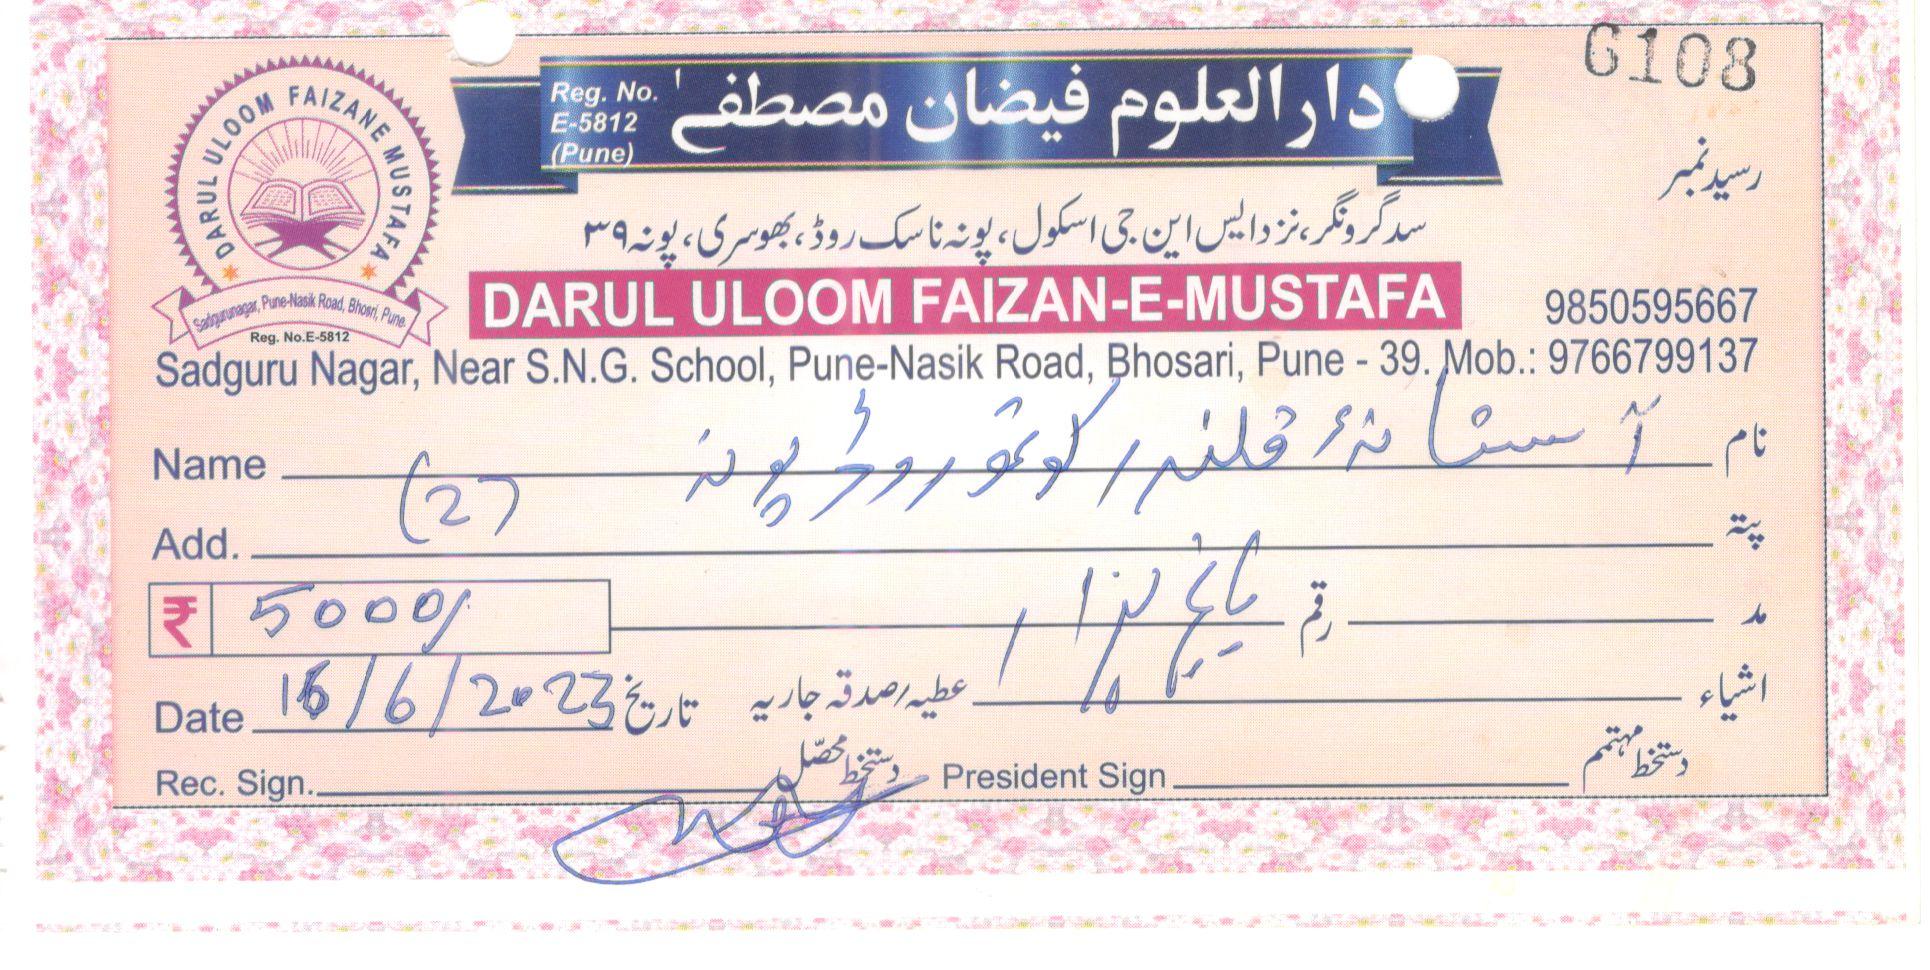 6108
رسید نمبر
Reg. No.
E-5812
(Pune)
دارالعلوم فیضان مصطفےٰ
DARUL ULOOM FAIZANE MUSTAFA
Sadgurunagar, Pune-Nasik Road, Bhosri, Pune.
Reg. No.E-5812
سدگرونگر، نزد ایس این جی اسکول، پونہ ناسک روڈ، بھوسری، پونہ ۳۹
DARUL ULOOM FAIZAN-E-MUSTAFA
9850595667
Sadguru Nagar, Near S.N.G. School, Pune-Nasik Road, Bhosari, Pune - 39. Mob.: 9766799137
Name آستانۂ قلندر روڈ پونہ نام
(2)
Add. پتہ
₹ 5000/ پانچ ہزار رقم مد
Date 16/6/2023 تاریخ عطیہ/صدقہ جاریہ اشیاء
Rec. Sign. دستخط محصّل President Sign دستخط مہتمم